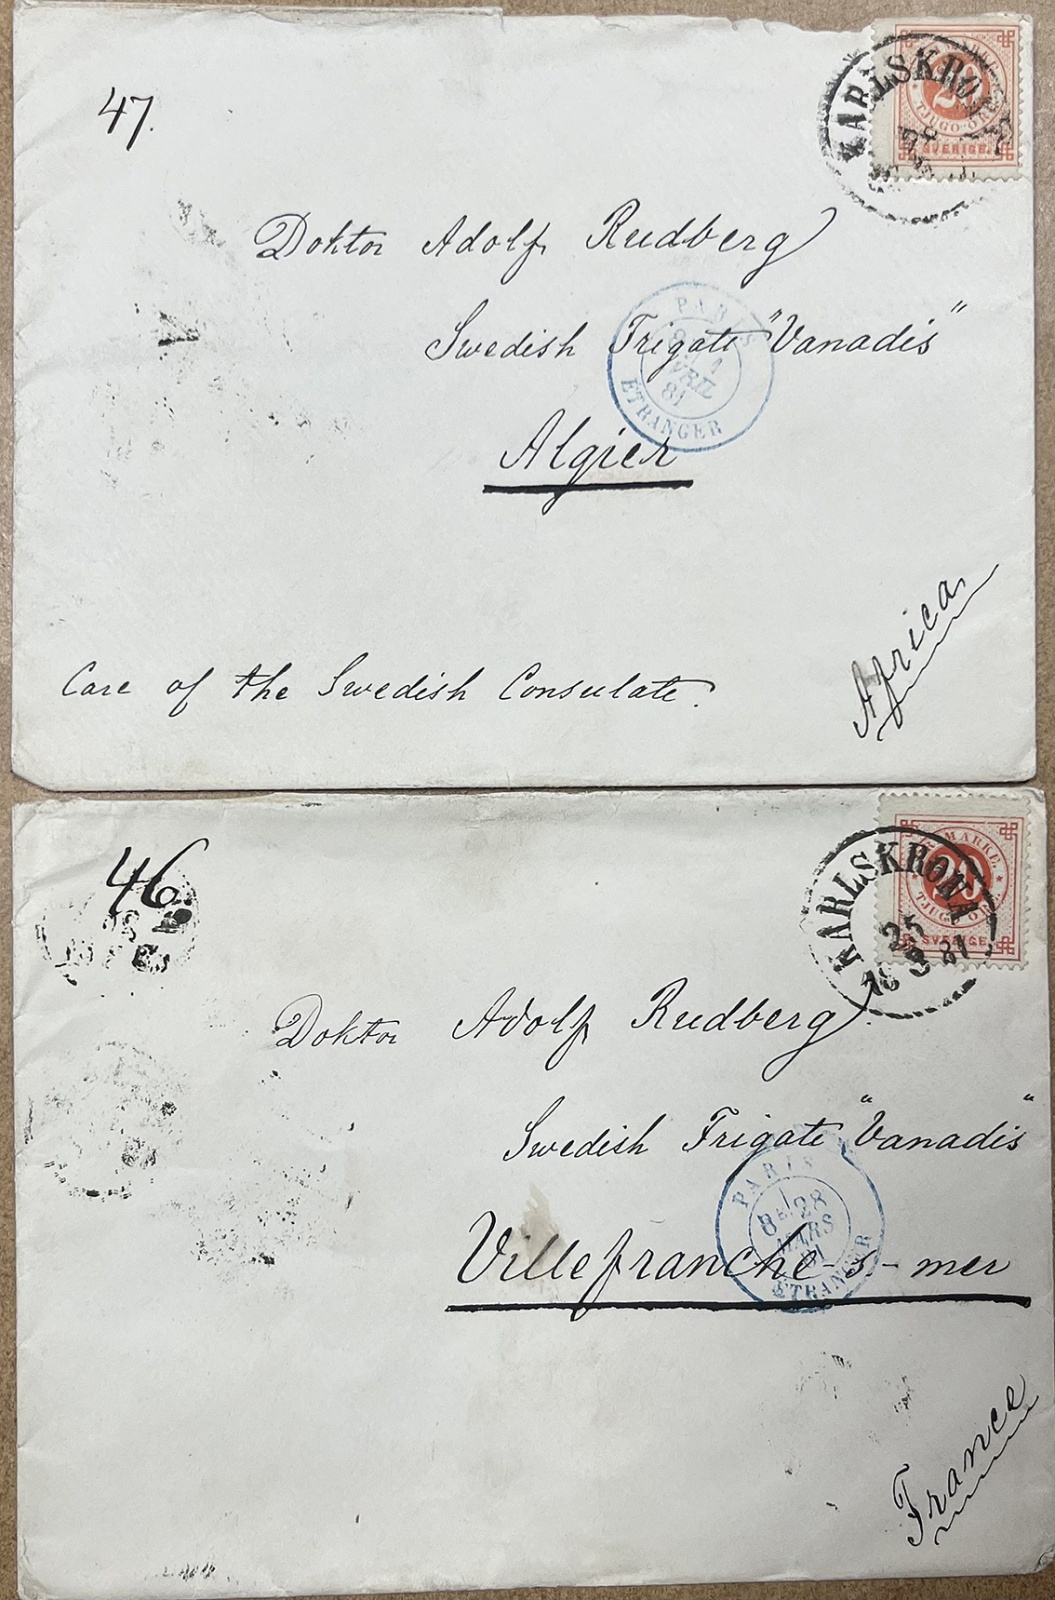 47.
KARLSKRONA
20
TJUGO ÖRE
SVERIGE.
Doktor Adolf Rudberg
Swedish Frigate "Vanadis"
PARIS
AVRIL
81
ETRANGER
Algier
Care of the Swedish Consulate.
Africa
46.
KARLSKRONA
25
3
81
FRIMARKE.
20
TJUGO ÖRE
SVERIGE
Doktor Adolf Rudberg
Swedish Frigate "Vanadis"
PARIS
28
MARS
81
ETRANGER
Villefranche-s-mer
France